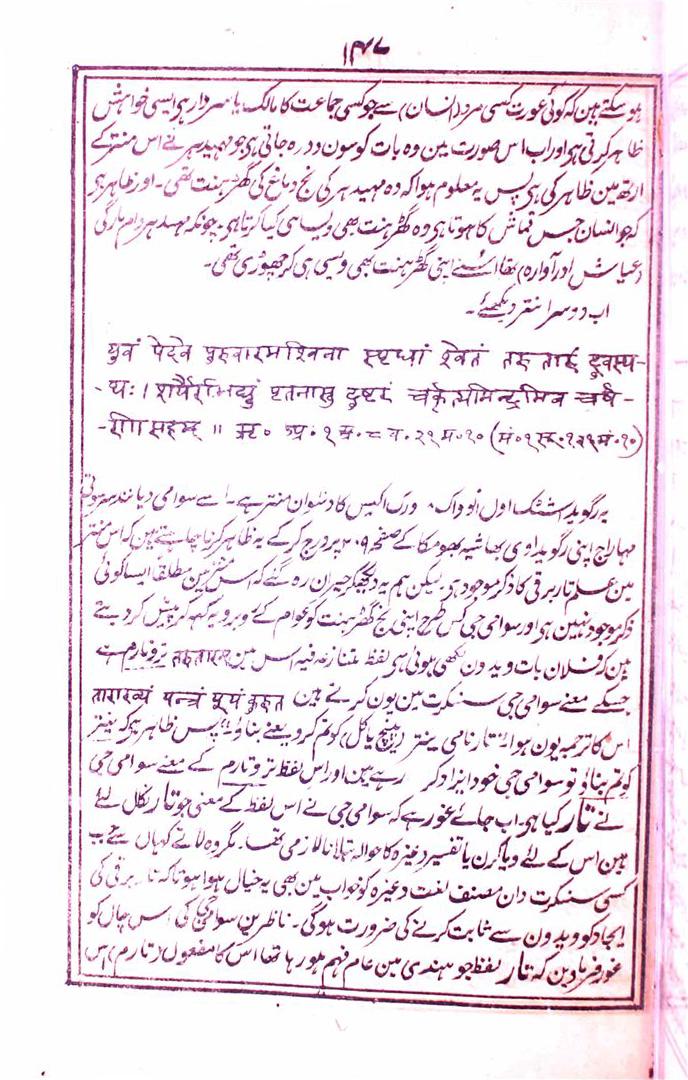 ۱۴۷
ہو سکتے ہین کہ کوئی عورت کسی مرد (انسان) سے جو کسی جماعت کا مالک یا سردار ہی ایسی خواہش
ظاہر کرتی ہی اور اب اس صورت مین وہ بات کوسون دور رہ جاتی ہی جو مہیدہر نے اس منتر کے
ارتھ مین ظاہر کی ہی پس یہ معلوم ہوا کہ وہ مہیدہر کی کج دماغ کی گھڑہنت تھی۔ اور ظاہر ہی
کہ جو انسان جس قماش کا ہوتا ہی وہ گھڑہنت بھی ویسا ہی کیا کرتا ہی۔ چونکہ مہیدہر وام مارگی
(عیاش اور آوارہ) تھا اسنے اپنی گھڑہنت بھی ویسی ہی کر چھوڑی تھی۔
اب دوسرا منتر دیکھئے۔
युवं पेदवे पुरुवारमश्विना स्पृधां श्वेतं तरुतारं दुवस्य-
-थः। शर्यैरभिद्युं पृतनासु दुष्टरं चर्कृत्यमिन्द्रमिव चर्ष-
-णीसहम् ॥ ऋ० अ०१ अ०८ व०२१ म०१० (मं०१ सू०११९ मं०१०)
یہ رگوید اشٹک اول انوواک ۸ ورگ اکیس کا دسوان منتر ہے۔ اسے سوامی دیانند سرسوتی
مہاراج اپنی رگوید ادی بھاشیہ بھومکا کے صفحہ ۲۰۹ پر درج کر کے یہ ظاہر کرنا چاہتے ہین کہ اس منتر
مین علم تار برقی کا ذکر موجود ہی لیکن ہم یہ دیکھکر حیران رہ گئے کہ اس منتر مین مطلقاً ایسا کوئی
ذکر موجود نہین ہی اور سوامی جی کس طرح اپنی کج گھڑہنت کو عوام کے روبرو یہ کہہ کر پیش کر دیتے
ہین کہ فلان بات ویدون لکھی ہوئی ہی لفظ متنازعہ فیہ اس مین तरुतारम् تروتارم ہے
جسکے معنے سوامی جی سنسکرت مین یون کرتے ہین ताराख्यं यन्त्रं यूयं कुरुत
اس کا ترجمہ یون ہوا "تار نامی ینتر (پیچ یا کل) کو تم کرو یعنے بناؤ"۔ پس ظاہر ہی کہ ینتر
کو تم بناؤ تو سوامی جی خود ایزاد کر رہے ہین اور اس لفظ تروتارم کے معنے سوامی جی
نے تار کیا ہی۔ اب جائے غور ہے کہ سوامی جی نے اس لفظ کے معنی جو تار نکال لئے
ہین اس کے لئے ویاکرن یا تفسیر وغیرہ کا حوالہ بتلانا لازمی تھا۔ مگر وہ لاتے کہاں سے جب
کسی سنسکرت دان مصنف لغت وغیرہ کو خواب مین بھی یہ خیال ہوا ہوتا کہ تار برقی کی
ایجاد کو ویدون سے ثابت کرنے کی ضرورت ہوگی۔ ناظرین سوامی جی کی اس چال کو
غور فرمادین کہ تار لفظ جو ہندی مین عام فہم ہو رہا تھا اس کا مفعول (تارم) اس